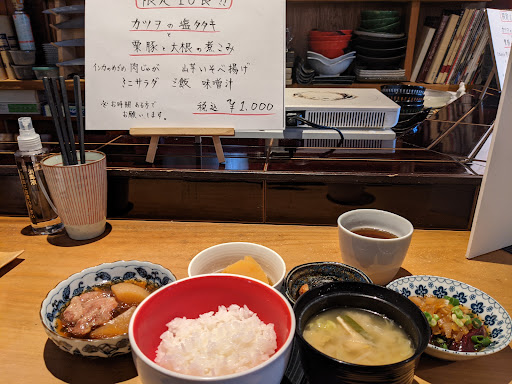 限定10食!!
カツオの塩タタキ
と
栗豚と大根の煮こみ
インカのめざめ 肉じゃが 山芋いそべ揚げ
ミニサラダ ご飯 味噌汁
税込 ¥1.000
お願いします。